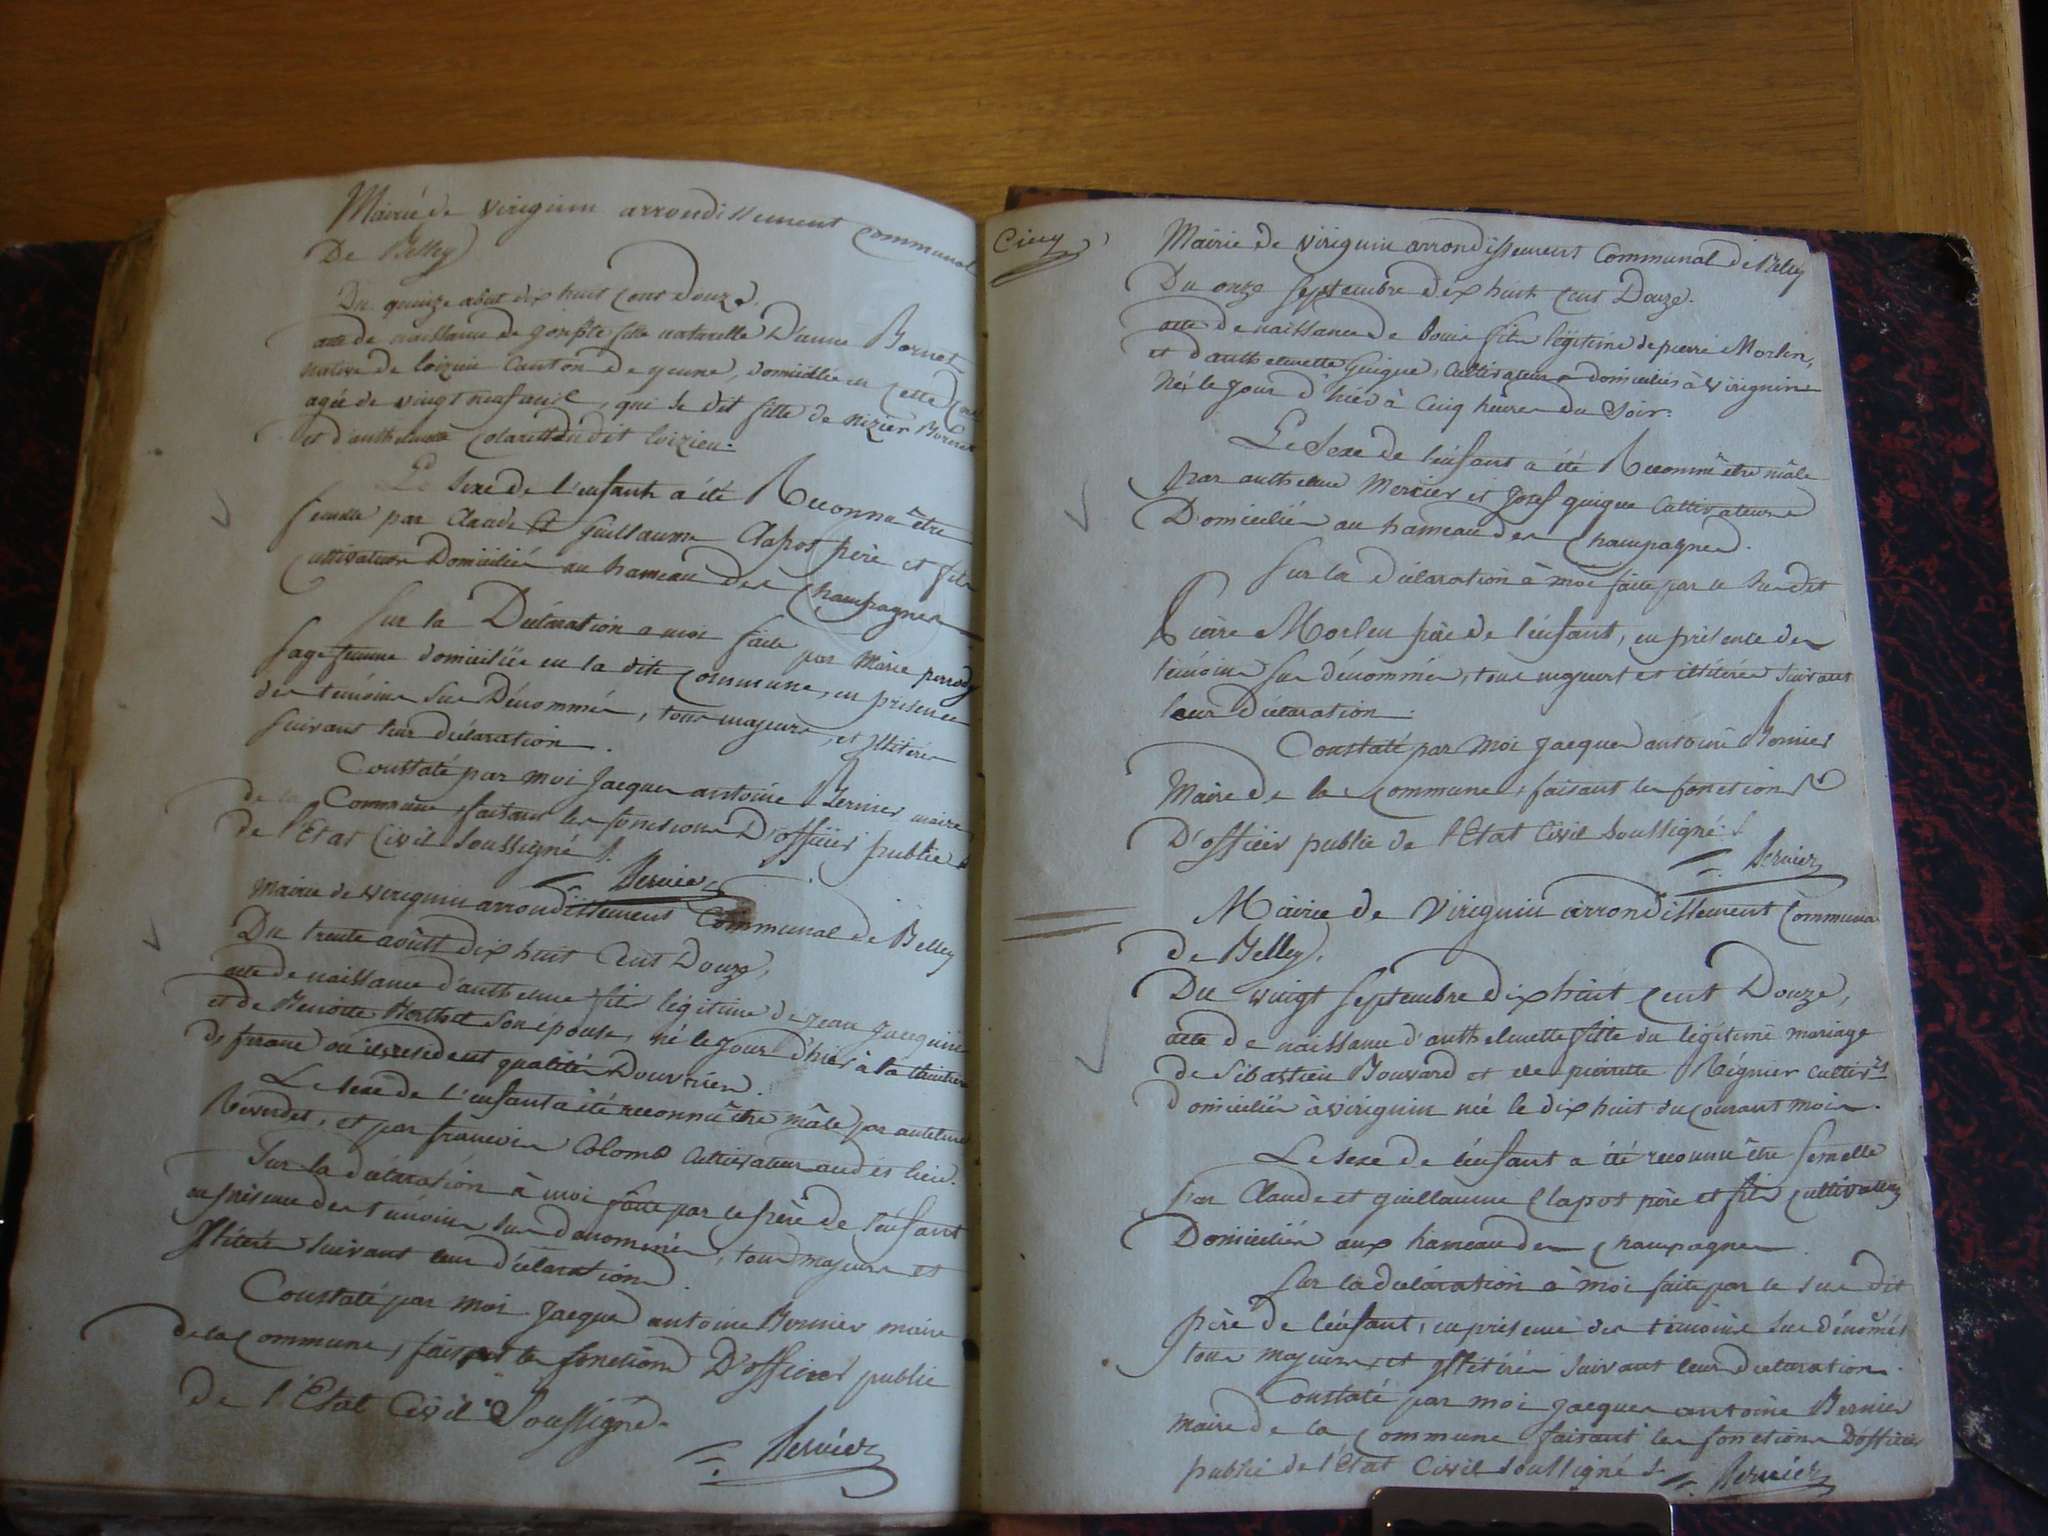 Mairie de virignin arrondissement Communal
De Belley
Du quinze abut dix huit cent douze.
acte de naissance de fille naturelle D'anne Bornet
native de loizieu Canton de yenne, domiciliée en cette
agée de vingt neuf ans, qui se dit fille de nizier Bornet
et d'anthelmette dudit loizieu.
Le Sexe de l'enfant a été Reconnu être
femelle par Claude et Guillaume Clapot père et fils
Cultivateurs Domiciliés au hameau des Champagnes
Sur la Déclaration a moi faite par Marie
sage femme domiciliée en la dite Commune, en présence
des témoins Sus Dénommés, tous majeurs, et Illitérés
suivant leur déclaration.
Constaté par moi Jacques antoine Bernier maire
de la Commune, faisant les fonctions D'officier public
de l'Etat Civil Soussigné.
Bernier
Mairie de virignin arrondissement Communal de Belley
Du trente août dix huit Cent Douze,
acte de naissance d'anthelme fils légitime de jean jacquin
et de Benoite Berthet Son épouse, né le jour d'hier à la
de où ils resident qualité D'ouvriers.
Le Sexe de l'enfant a été reconnu être mâle par antelme
Reverdet, et par francois Colomb Cultivateurs audit lieu.
Sur la déclaration à moi faite par le père de l'enfant
en présence des témoins Sus dénommés, tous majeurs et
Illitérés suivant leur déclaration
Constaté par moi Jacques antoine Bernier maire
de la Commune, faisant les fonctions D'officier public
de l'Etat Civil Soussigné.
Bernier
Cinq
Mairie de virignin arrondissement Communal de Belley
Du onze Septembre dix huit Cent Douze.
acte de naissance de Louis fils légitime de pierre Morlen,
et d'anthelmette Guigue, Cultivateurs domiciliés à virignin
Né le jour d'hier à Cinq heures du Soir.
Le Sexe de l'enfant a été Reconnu être mâle
par anthelme Mercier et Josef guigue Cultivateurs
Domiciliés au hameau des Champagnes.
Sur la déclaration à moi faite par le Sus dit
Pierre Morlen père de l'enfant, en présence des
témoins Sus dénommés, tous majeurs et illitérés suivant
leur déclaration.
Constaté par moi Jacques antoine Bernier
Maire de la Commune, faisant les fonctions
D'officier public de l'Etat Civil Soussigné.
Bernier
Mairie de Virignin arrondissement Communal
de Belley.
Du vingt Septembre dix huit Cent Douze,
acte de naissance d'anthelmette fille du légitime mariage
de Sébastien Bouvard et de pierrette Régnier cultivrs
domiciliés à virignin née le dix huit du courant mois.
Le Sexe de l'enfant a été reconnu être femelle
par Claude et guillaume Clapot père et fils Cultivateurs
Domiciliés aux hameau des Champagnes.
Sur la déclaration à moi faite par le Sus dit
père de l'enfant, en présence des témoins Sus dénomés
tous majeurs, et Illitérés suivant leur declaration.
Constaté par moi Jacques antoine Bernier
maire de la Commune faisant les fonctions D'officier
public de l'Etat Civil Soussigné
Bernier